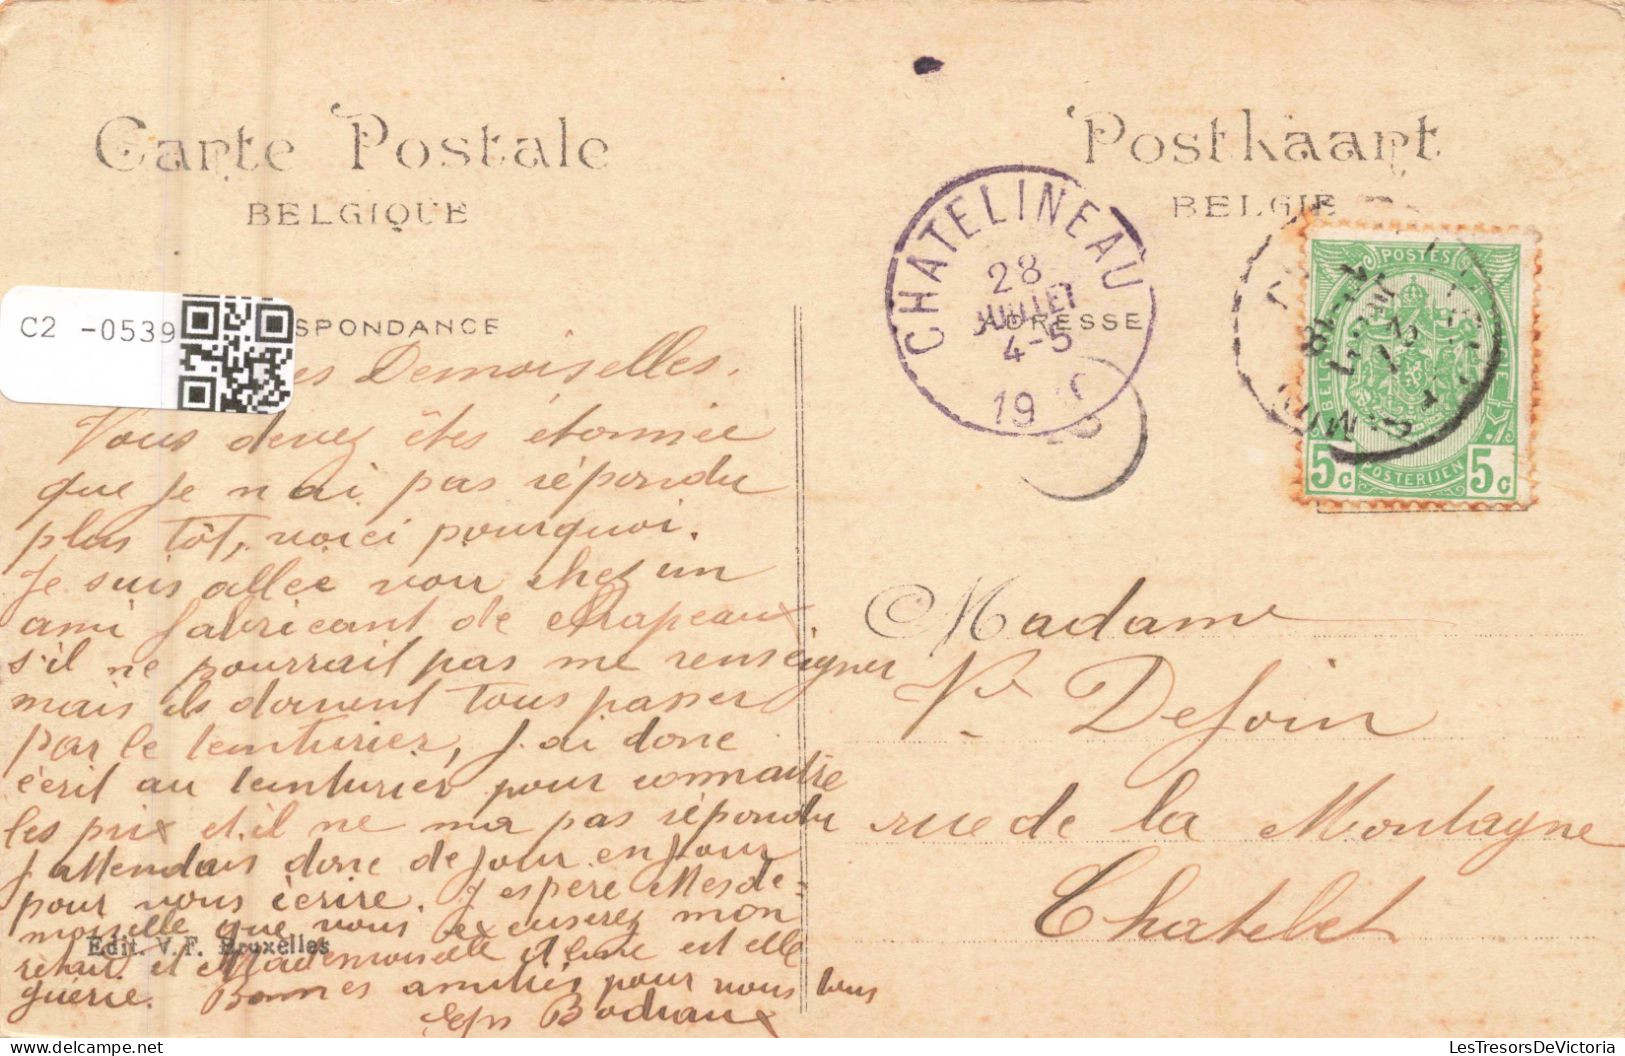 Carte Postale
BELGIQUE
Postkaart
BELGIE
CHATELINEAU
28
JUILLET
4-5
19
C2 -0539
SPONDANCE
ADRESSE
POSTES
BELGIQUE
POSTERIJEN
5c 5c
es Demoiselles.
Vous devez êtes étonnée
que je n ai pas répondu
plus tôt, voici pourquoi.
Je suis allée voir chez un
ami fabricant de chapeaux
s'il ne pourrait pas me renseigner
mais ils doivent tous passer
par le teinturier, j.ai donc
écrit au teinturier pour connaître
les prix et il ne ma pas répondu
J attendais donc de jour en jour
pour vous écrire. J espère Mesde-
moiselle que vous excuserez mon
retard. et Mademoiselle est elle
guérie. Bonnes amitiés pour vous tous
Edit. V.F. Bruxelles
Madame
Ve Defoin
rue de la Montagne
Chatelet
LesTresorsDeVictoria
www.delcampe.net